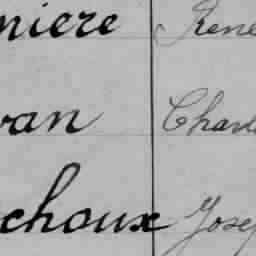 niere René
van Charl
choux Josep